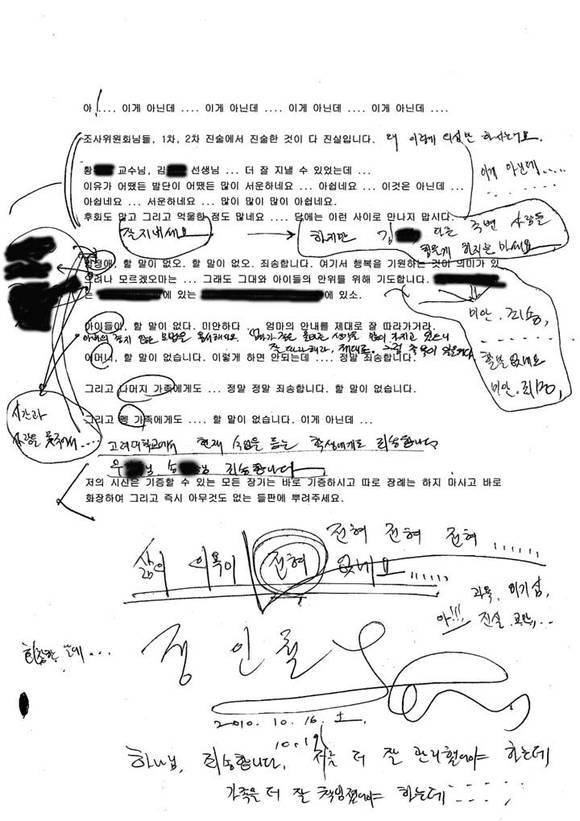 아!.... 이게 아닌데 .... 이게 아닌데 .... 이게 아닌데 .... 이게 아닌데 ....
조사위원회님들, 1차, 2차 진술에서 진술한 것이 다 진실입니다. 왜 이렇게 의심만 하시는지요.
황 교수님, 김 선생님 ... 더 잘 지낼 수 있었는데 ...
이게 아닌데....
이유가 어쨌든 발단이 어쨌든 많이 서운하네요 ... 아쉽네요 ... 이것은 아닌데 ...
아쉽네요 ... 서운하네요 ... 많이 많이 많이 아쉽네요.
후회도 많고 그리고 억울한 점도 많네요 .... 담에는 이런 사이로 만나지 맙시다.
잘지내세요
하지만 김 다른 주변 사람들
힘들게 하지는 마세요
할 말이 없오. 할 말이 없오. 죄송합니다. 여기서 행복을 기원하는 것이 의미가 있
으려나 모르겠오마는 ... 그래도 그대와 아이들의 안위를 위해 기도합니다.
는 에 있는 에 있소.
미안. 죄송,
할말 없네요
미안. 죄송,
아이들아, 할 말이 없다. 미안하다 . 엄마의 안내를 제대로 잘 따라가거라.
어머니, 할 말이 없습니다. 이렇게 하면 안되는데 .... 정말 죄송합니다.
그리고 나머지 가족에게도 ... 정말 정말 죄송합니다. 할 말이 없습니다.
시간과
사랑을 못주어서....
그리고 가족에게도 .... 할 말이 없습니다. 이게 아닌데 ...
고려대학교에서 현재 수업을 듣는 학생에게도 죄송합니다
우 님 송 님 죄송합니다
저의 시신은 기증할 수 있는 모든 장기는 바로 기증하시고 따로 장례는 하지 마시고 바로
화장하여 그리고 즉시 아무것도 없는 들판에 뿌려주세요.
전혀 전혀 전혀 ......
삶의 의욕이 전혀 없네요 ......
과욕, 이기심,
아!!! 진실.
정 인 철
2010. 10. 16. 土.
10. 19
하나님, 죄송합니다. 저를 더 잘 관리했어야 하는데
가족을 더 잘 책임졌어야 하는데 ......